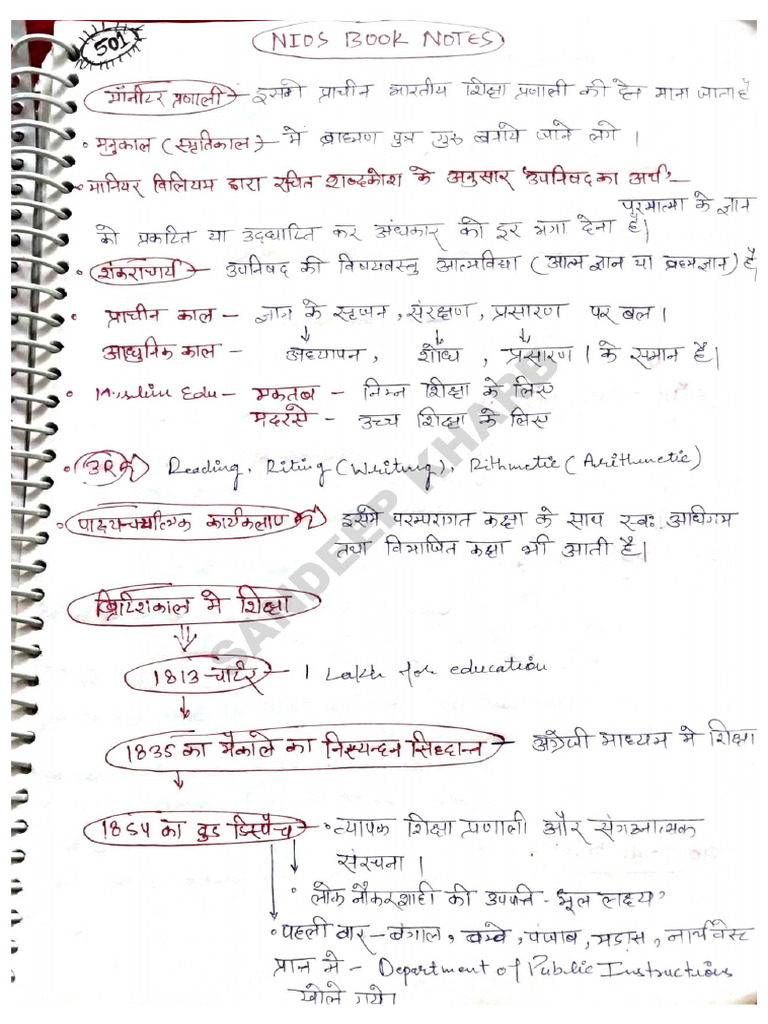 501
NIOS BOOK NOTES
मॉनीटर प्रणाली → इसको प्राचीन भारतीय शिक्षा प्रणाली की देन माना जाता है
• मनुकाल (स्मृतिकाल) → में ब्राह्मण पुत्र गुरु बनाये जाने लगे।
• मानियर विलियम द्वारा रचित शब्दकोश के अनुसार 'उपनिषद का अर्थ' –
परमात्मा के ज्ञान
को प्रकटित या उद्घाटित कर अंधकार को दूर भगा देना है।
• शंकराचार्य → उपनिषद की विषयवस्तु आत्मविद्या (आत्म ज्ञान या ब्रह्मज्ञान) है
• प्राचीन काल – ज्ञान के सृजन, संरक्षण, प्रसारण पर बल।
आधुनिक काल – अध्यापन, शोध, प्रसारण। के समान है।
• Muslim Edu – मकतब – निम्न शिक्षा के लिए
मदरसे – उच्च शिक्षा के लिए
• 3R → Reading, Riting (Writing), Rithmetic (Arithmetic)
• पाठ्यचर्यात्मक कार्यकलाप → इसमें परम्परागत कक्षा के साथ स्वः अधिगम
तथा विभाजित कक्षा भी आती है।
ब्रिटिशकाल मे शिक्षा
1813 - चार्टर – 1 Lakh for education
1835 का मैकाले का निस्यन्दन सिद्धान्त → अंग्रेजी माध्यम मे शिक्षा
1854 का वुड डिस्पैच → • व्यापक शिक्षा प्रणाली और संगठनात्मक
संरचना।
• लोक नौकरशाही की उत्पत्ति - मूल लक्ष्य'
• पहली बार – बंगाल, बम्बे, पंजाब, मद्रास, नार्थवेस्ट
प्रान्त मे – Department of Public Instructions
खोले गये।
SANDEEP KHARB